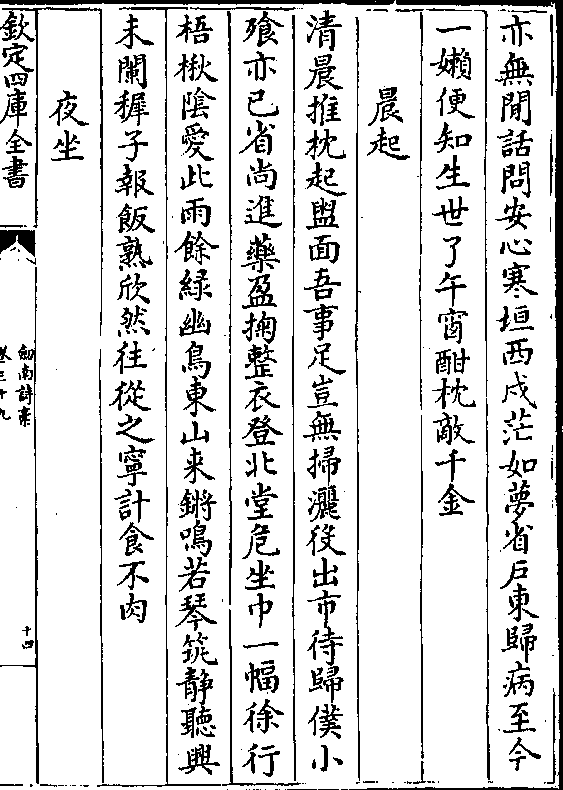 亦無閒話問安心寒垣西戍茫如夢省戶東歸病至今
一嬾便知生世了午窗酣枕敵千金
晨起
清晨推枕起盥面吾事足豈無掃灑役出市待歸僕小
飱亦已省尚進藥盈掬整衣登北堂危坐巾一幅徐行
梧楸陰愛此雨餘緑幽鳥東山来鏘鳴若琴筑静聽興
未闌穉子報飯熟欣然往從之寧計食不肉
夜坐
欽定四庫全書
劍南詩藁
卷三十九
十四